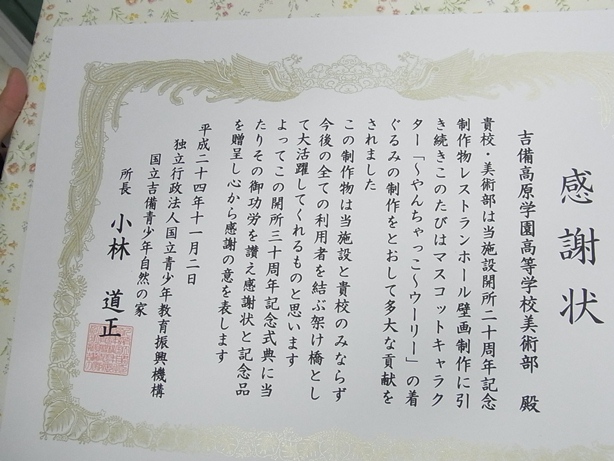 感謝状
吉備高原学園高等学校美術部 殿
貴校・美術部は当施設開所二十周年記念
制作物レストランホール壁画制作に引
き続きこのたびはマスコットキャラク
ター「～やんちゃっこ～ウーリー」の着
ぐるみの制作をとおして多大な貢献を
されました
この制作物は当施設と貴校のみならず
今後の全ての利用者を結ぶ架け橋とし
て大活躍してくれるものと思います
よってこの開所三十周年記念式典に当
たりその御功労を讃え感謝状と記念品
を贈呈し心から感謝の意を表します
平成二十四年十一月二日
独立行政法人国立青少年教育振興機構
国立吉備青少年自然の家
所長 小林 道正